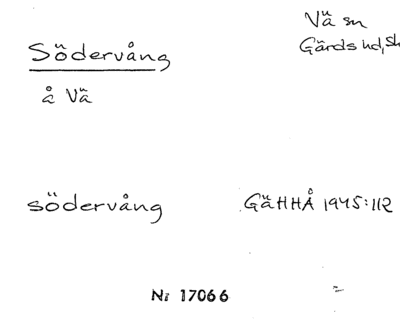 Vä sn
Södervång
Gärds hd, Sk
å Vä
södervång GäHHÅ 1945:112
Nr 17066